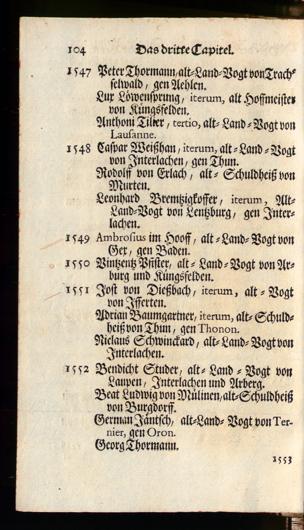 104 Das dritte Capitel.
1547 Peter Thormann, alt-Land-Vogt von Trach-
selwald, gen Aehlen.
Lux Löwensprung, iterum, alt Hoffmeister
von Küngsfelden.
Anthoni Tilier, tertio, alt-Land-Vogt von
Lausanne.
1548 Caspar Weißhan, iterum, alt-Land-Vogt
von Interlachen, gen Thun.
Rodolff von Erlach, alt-Schuldheiß von
Murten.
Leonhard Bremtzigkoffer, iterum, Alt-
Land-Vogt von Lentzburg, gen Inter-
lachen.
1549 Ambrosius im Hooff, alt-Land-Vogt von
Gex, gen Baden.
1550 Vintzentz Pfister, alt-Land-Vogt von Ar-
burg und Küngsfelden.
1551 Jost von Dießbach, iterum, alt-Vogt
von Ifferten.
Adrian Baumgartner, iterum, alt-Schuld-
heiß von Thun, gen Thonon.
Niclaus Schwinckard, alt-Land-Vogt von
Interlachen.
1552 Bendicht Studer, alt-Land-Vogt von
Laupen, Interlachen und Arberg.
Beat Ludwig von Mülinen, alt-Schuldheiß
von Burgdorff.
German Jäntsch, alt-Land-Vogt von Ter-
nier, gen Oron.
Georg Thormann.
1553